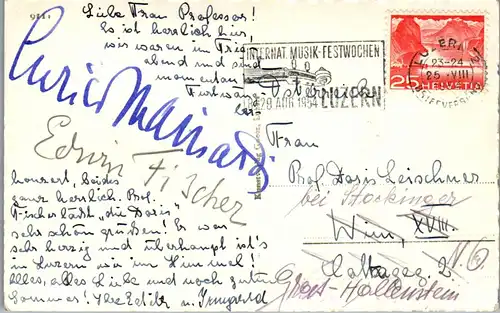 Liebe Frau Professor!
Es ist herrlich hier,
wir waren im Trio
abend und sind
momentan
Furtwäng-
ler
Enrico Mainardi
Edwin Fischer
konzert, beides
ganz herrlich. Prof.
Fischer läßt „die Doris"
sehr schön grüßen! Er war
sehr herzig und überhaupt ist's
in Luzern wie im Himmel!
Alles, alles Liebe und noch guten
Sommer! Ihre Edith u. Irmgard
INTERNAT. MUSIK-FESTWOCHEN
29 AUG 1954 LUZERN
LUZERN
23-24
25.VIII
25 HELVETIA
Österreich
Frau
Prof. Doris Leischner
bei Stockinger
Wien, XVIII.
2
N.Ö.
Gross-Hollenstein